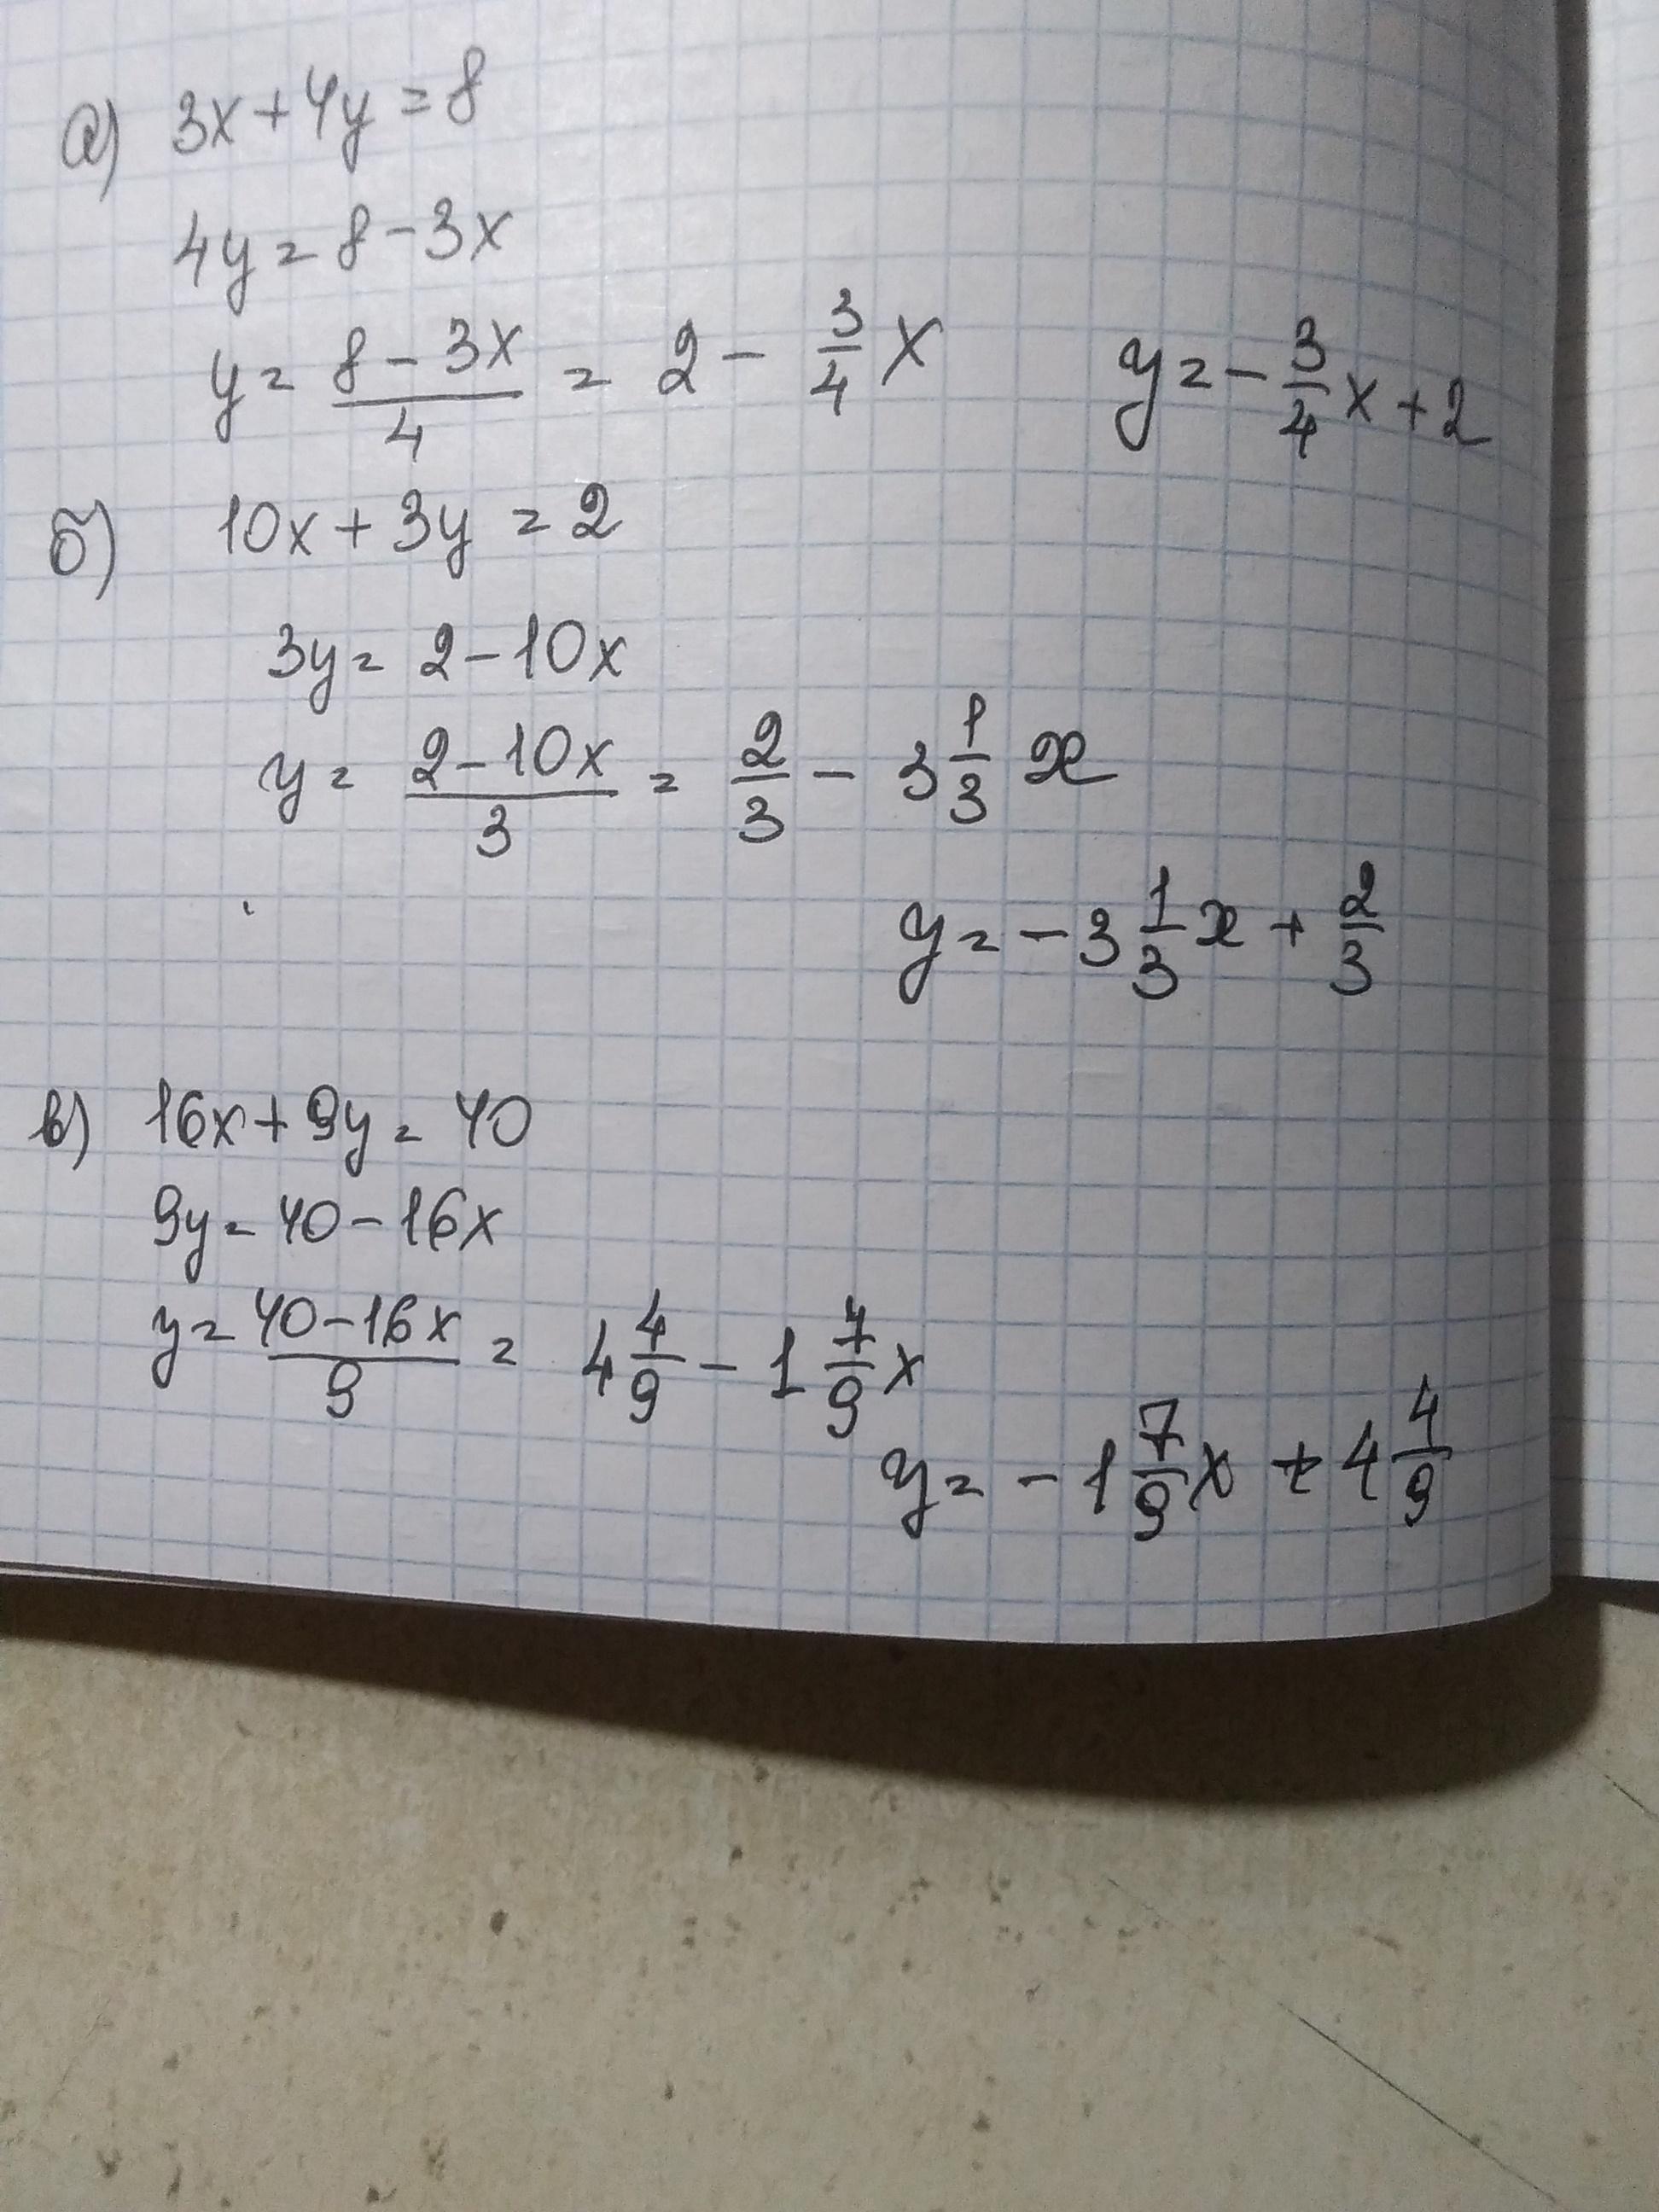 а) 3x+4y=8
4y=8-3x
y= \frac{8-3x}{4} = 2 - \frac{3}{4}x y=-\frac{3}{4}x+2
б) 10x+3y=2
3y=2-10x
y= \frac{2-10x}{3} = \frac{2}{3} - 3\frac{1}{3}x
y=-3\frac{1}{3}x+\frac{2}{3}
в) 16x+9y=40
9y=40-16x
y=\frac{40-16x}{9} = 4\frac{4}{9} - 1\frac{7}{9}x
y=-1\frac{7}{9}x+4\frac{4}{9}